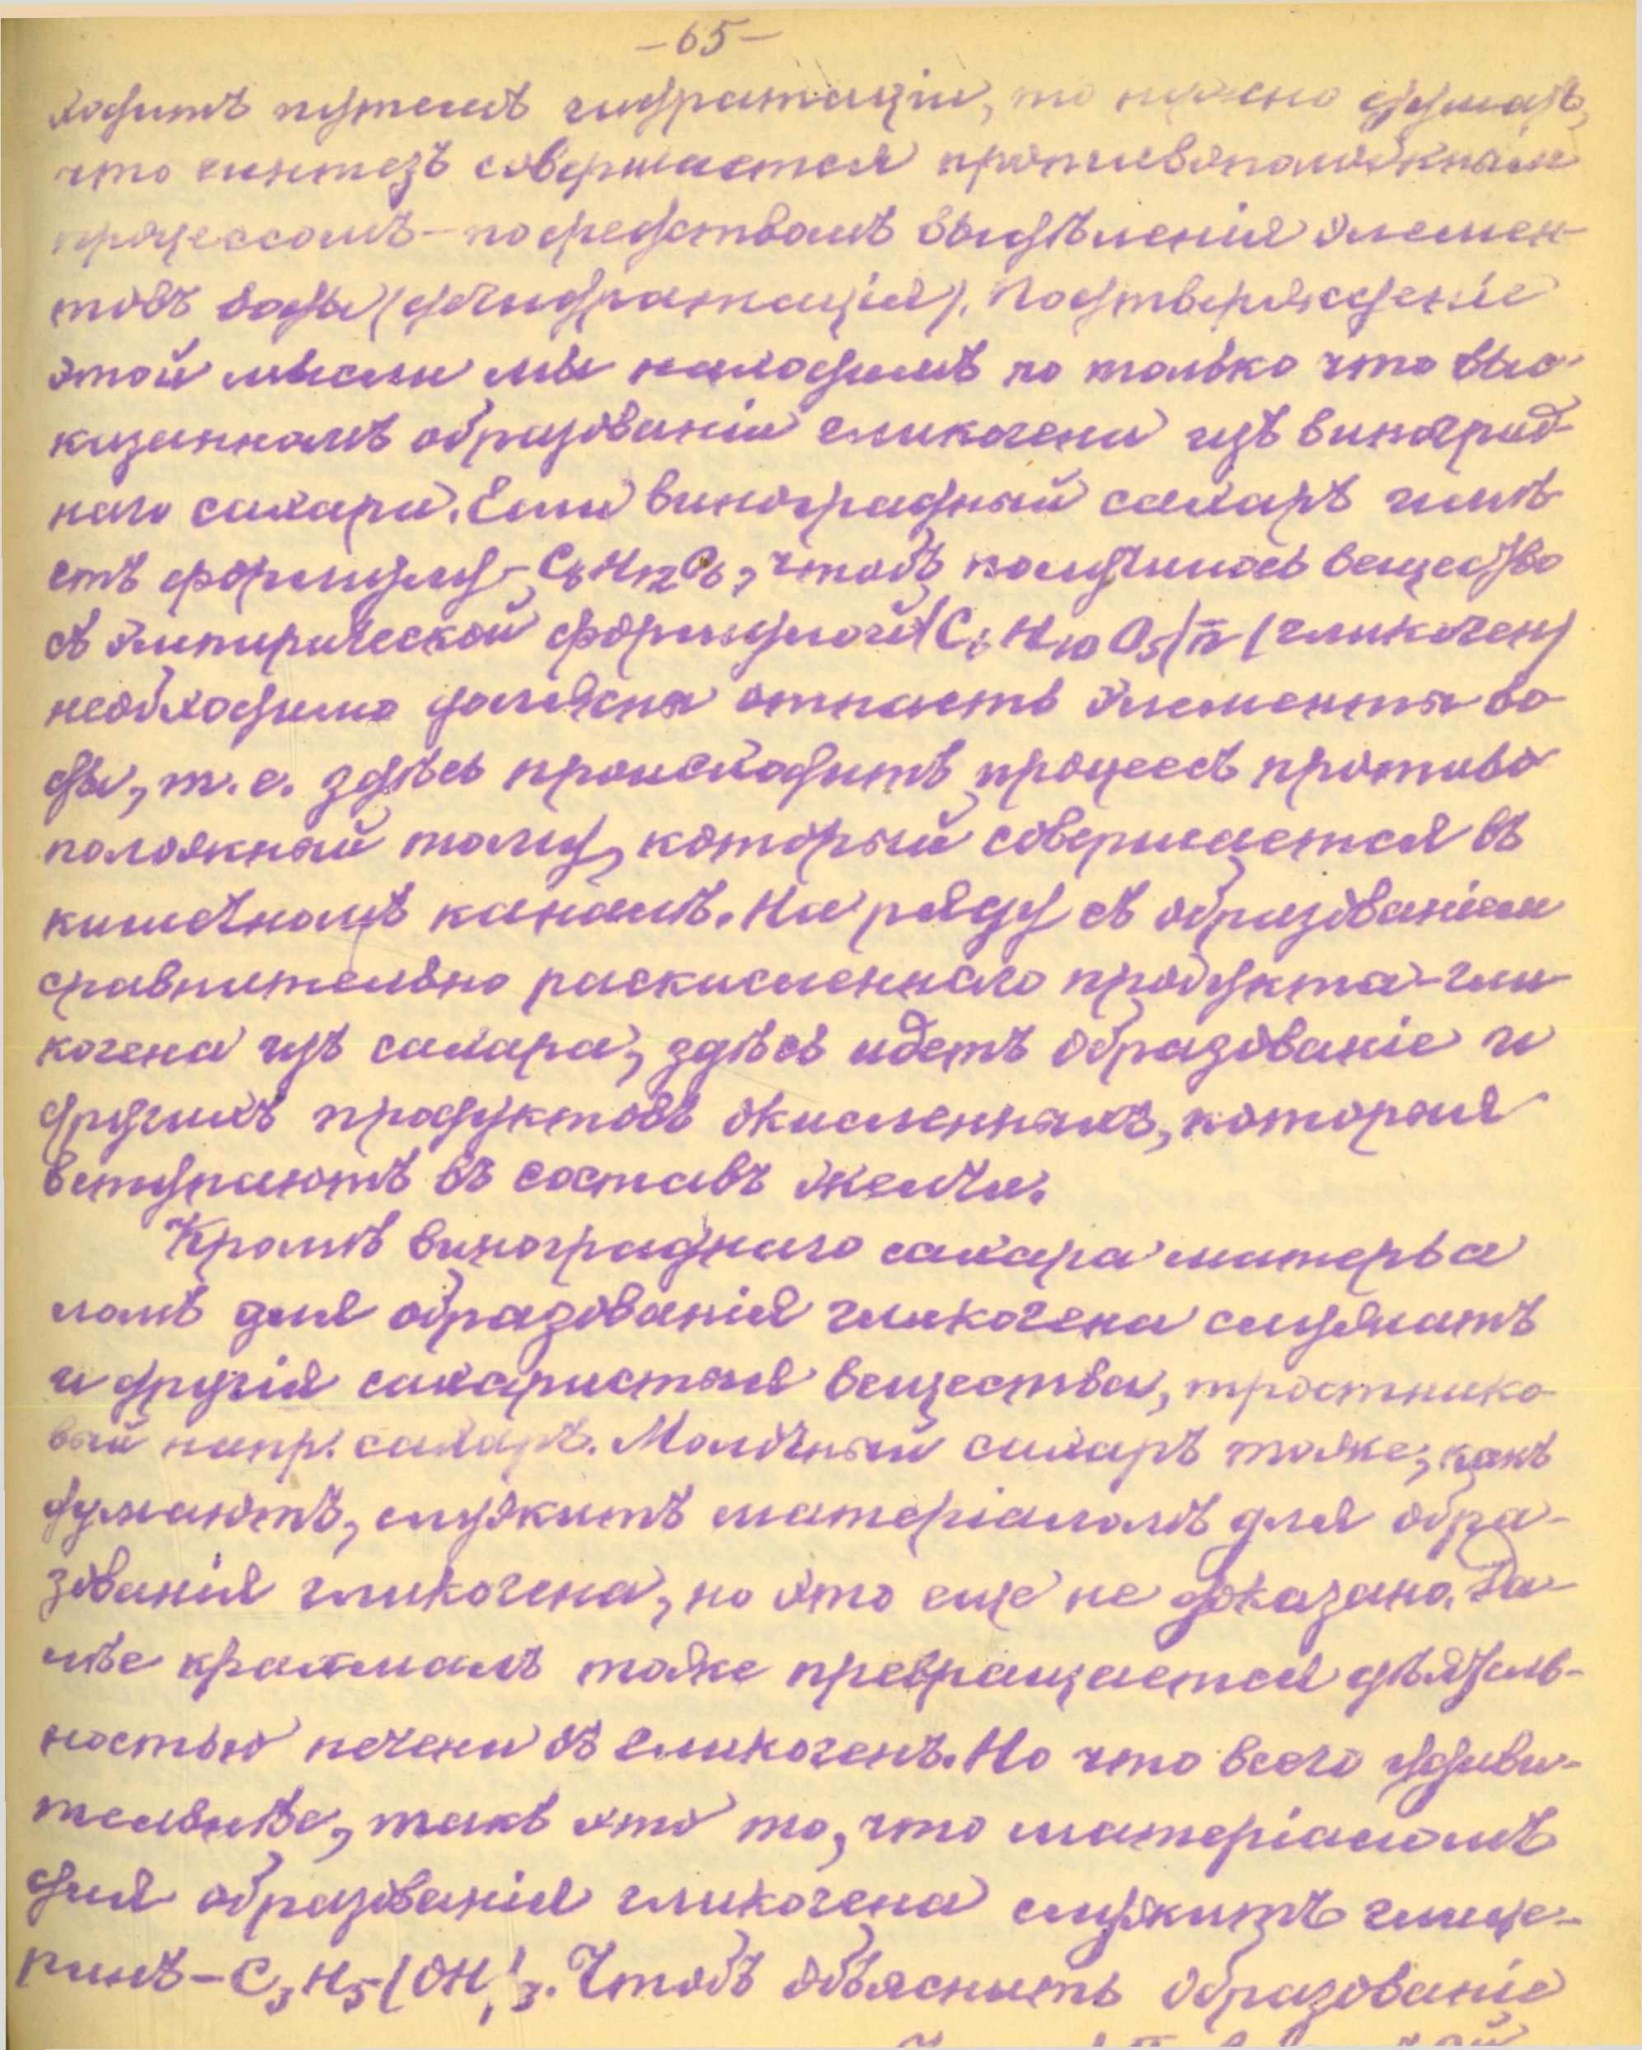 -65-
ходитъ путемъ гидратаціи, то нужно думать,
что синтезъ совершается противоположнымъ
процессомъ - посредствомъ выдѣленія элемен-
товъ воды (дегидратація). Подтвержденіе
этой мысли мы находимъ по только что выс-
казанномъ образованіи гликогена изъ виноград-
наго сахара. Если виноградный сахаръ имѣ
етъ формулу - C6H12O6, чтобъ получилось вещество
съ эмпирической формулой (C6H10O5)n (гликоген)
необходимо должны отпасть элементы во
ды, т.е. здѣсь происходитъ процессъ противо
положный тому, который совершается въ
кишечномъ каналѣ. На ряду съ образованіем
сравнительно раскисленнаго продукта-гли-
когена изъ сахара, здѣсь идетъ образованіе и
другихъ продуктовъ окисленныхъ, которыя
вступаютъ въ составъ желчи.
Кромѣ винограднаго сахара матерьа
ломъ для образованія гликогена служатъ
и другія сахаристыя вещества, тростнико-
вый напр. сахаръ. Молочный сахаръ тоже, какъ
думаютъ, служитъ матеріаломъ для обра-
зованія гликогена, но это еще не доказано. Да-
лѣе крахмалъ тоже превращается дѣятель-
ностью печени въ гликогенъ. Но что всего удиви-
тельнѣе, такъ это то, что матеріаломъ
для образованія гликогена служитъ глице-
ринъ - C3H5(OH)3. Чтобъ объяснить образованіе